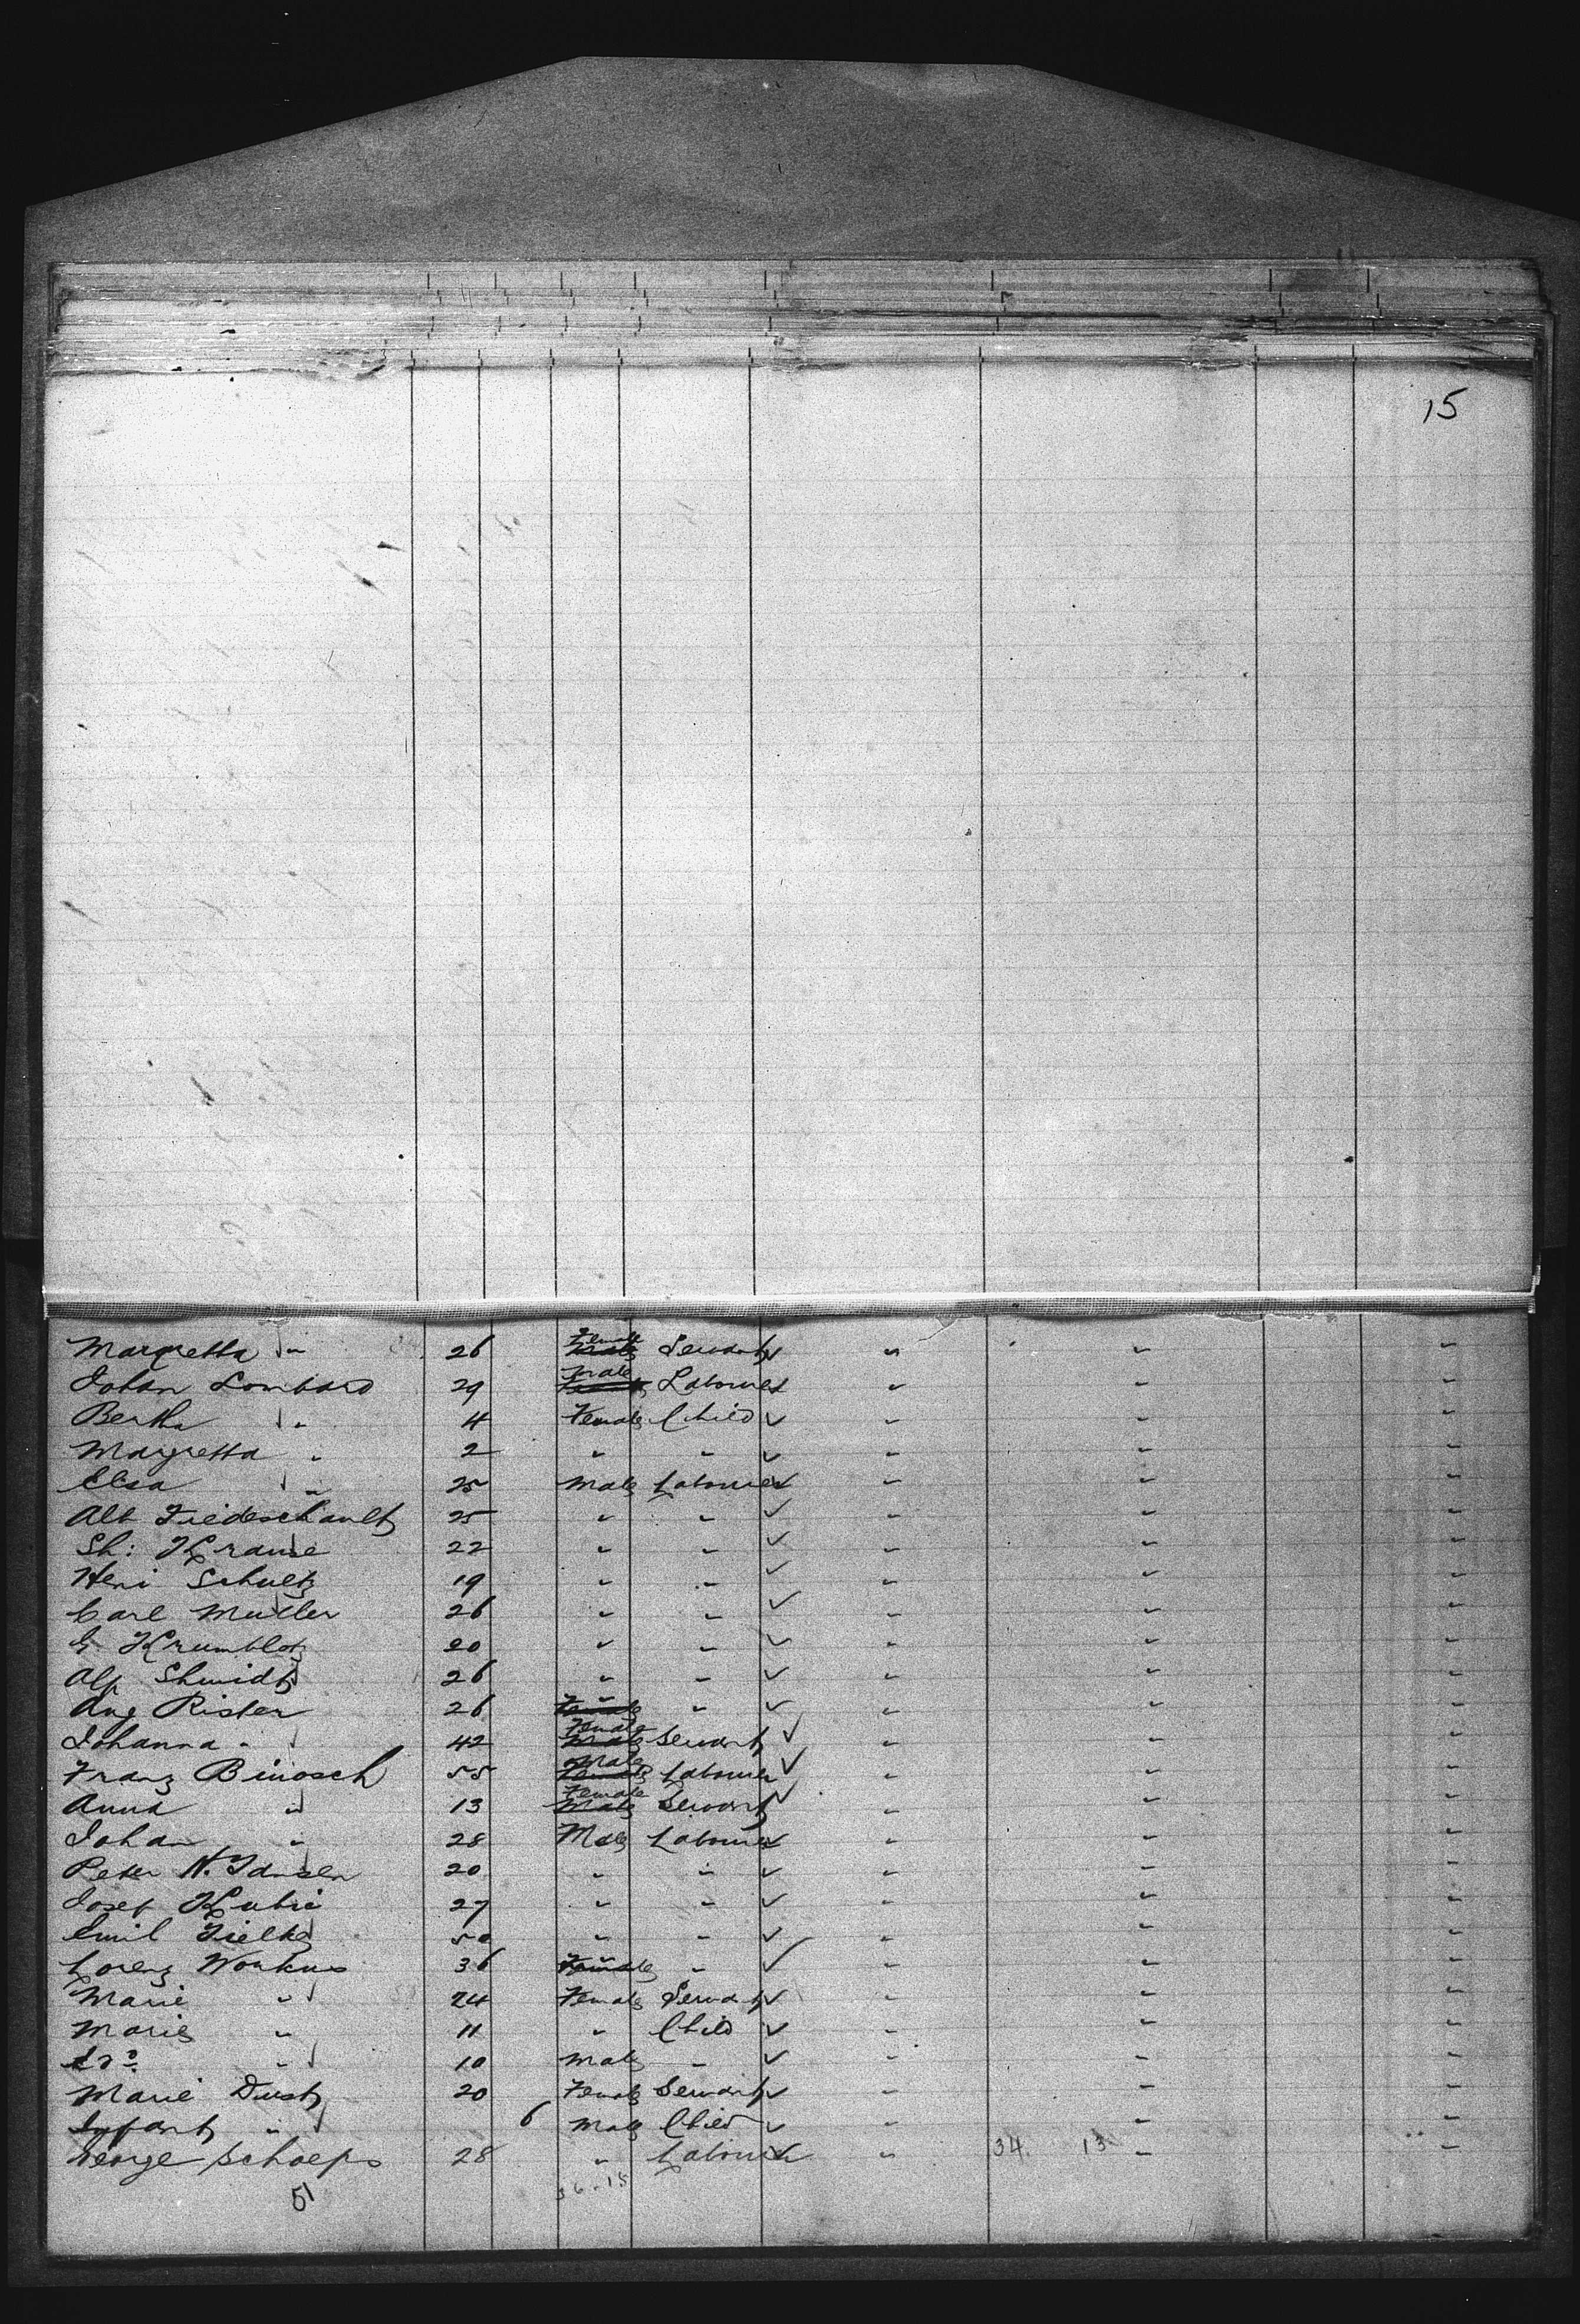 15
Margretta " 26 Female Servant "
Johan Lombard 29 Male Labourer "
Bertha " 4 Female Child "
Margretta " 2 " " "
Elsa " 25 Male Labourer "
Alb Friedeschault 25 " " "
Sh: Krause 22 " " "
Heni Schultz 19 " " "
Carl Muller 26 " " "
G Krumblotz 20 " " "
Alf Shmidt 26 " " "
Aug Rister 26 " " "
Johanna " 42 Female Servant "
Franz Binosch 55 Male Labourer "
Anna " 13 Female Servant "
Johan " 28 Male Labourer "
Peter N. Jansen 20 " " "
Josef Kubie 27 " " "
Emil Tielke 50 " " "
Lorenz Workus 36 " " "
Marie " 24 Female Servant "
Marie " 11 " Child "
Do " 10 Male " "
Marie Dust 20 Female Servant "
Infant " 6 Male Child "
George Schoeps 28 " Labourer " 34. 13 "
51 36-15